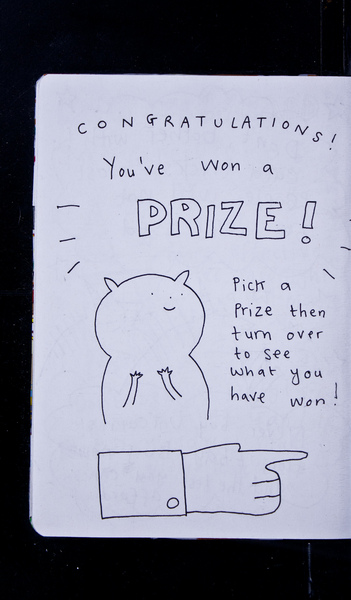 CONGRATULATIONS!
You've won a
PRIZE!
Pick a
Prize then
turn over
to see
what you
have won!